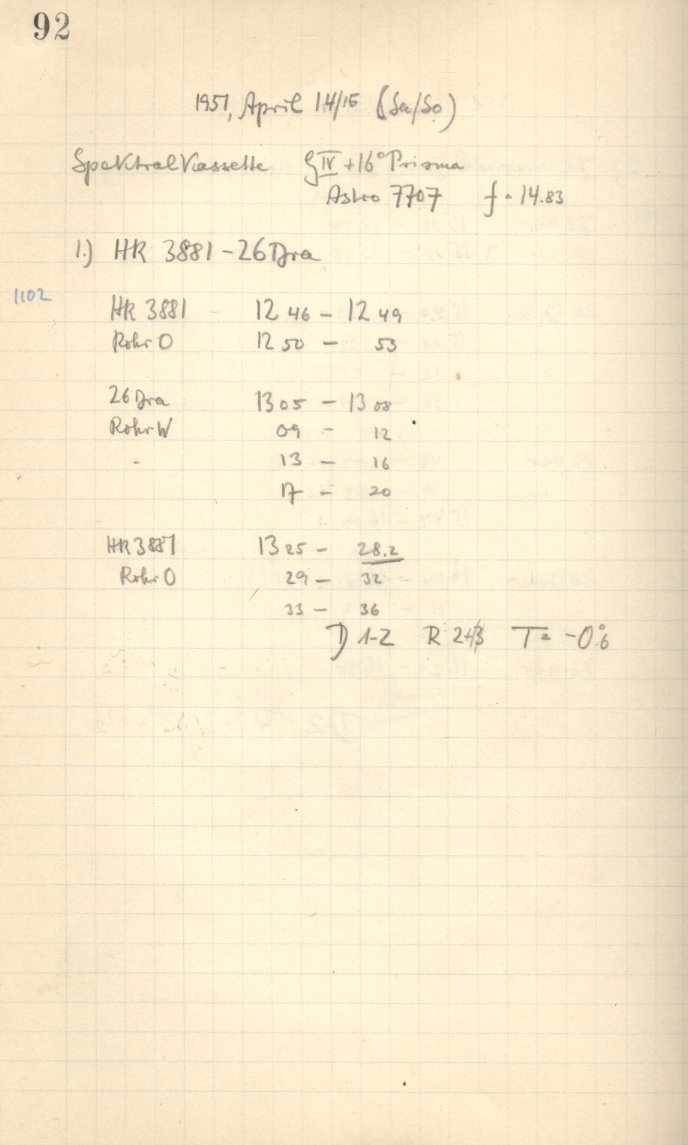 92
1951, April 14/15 (Sa/So)
Spektralkassette GIV + 16° Prisma
Astro 7707 f = 14.83
1.) HR 3881 - 26 Dra
1102
HR 3881 12 46 - 12 49
Rohr O 12 50 - 53
26 Dra 13 05 - 13 08
Rohr W 09 - 12
13 - 16
17 - 20
HR 3881 13 25 - 28.2
Rohr O 29 - 32
33 - 36
D 1-2 R 2+3 T = -0°.6